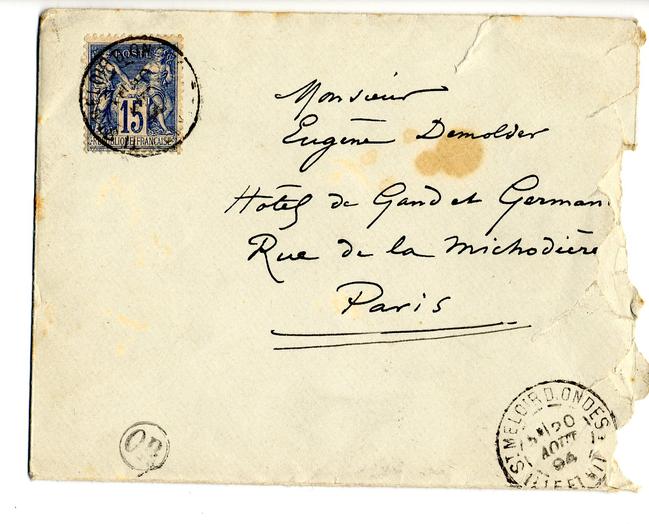 POSTE
15
RÉPUBLIQUE FRANÇAISE
Monsieur
Eugène Demolder
Hôtel de Gand et German
Rue de la Michodière
Paris
OR
ST MELOIR D. ONDES
20
AOUT
94
ILLE ET